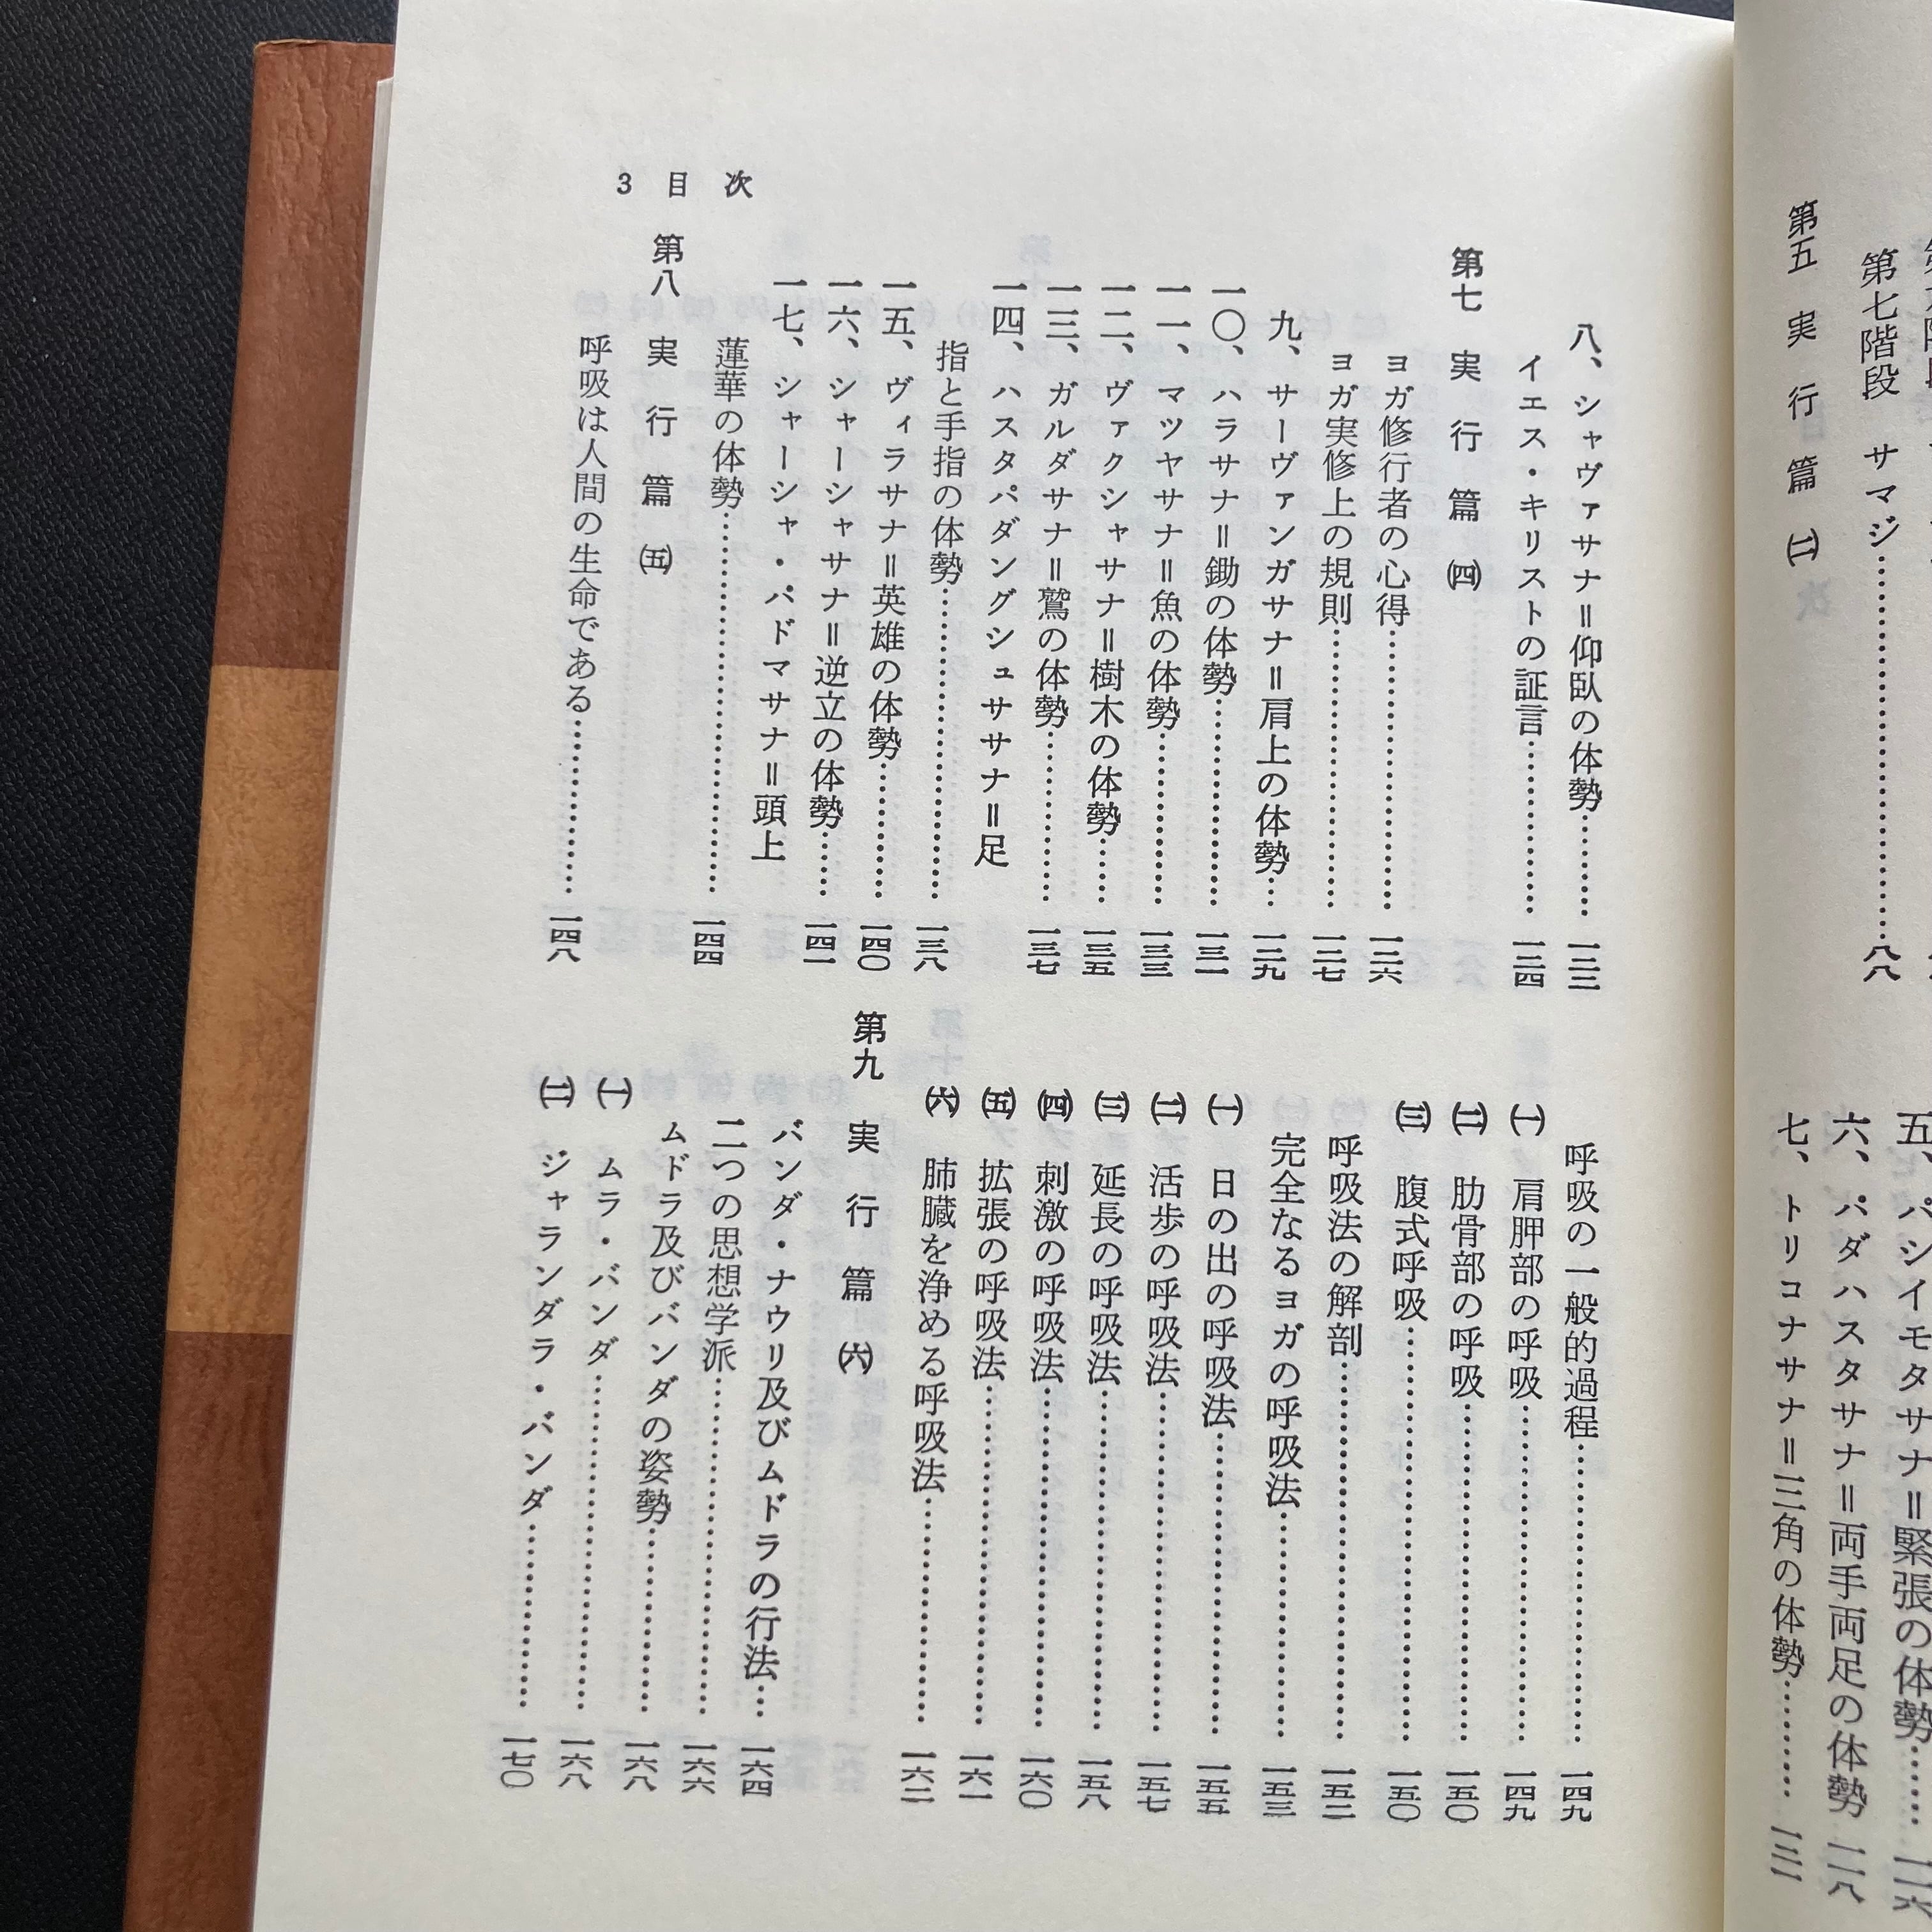 第七階段　サマジ……八八
第五　実行篇　㈡
五、パシイモタサナ＝緊張の体勢……一一六
六、パダハスタサナ＝両手両足の体勢　一一八
七、トリコナサナ＝三角の体勢……一二一
3　目次
八、シャヴァサナ＝仰臥の体勢……一二三
イエス・キリストの証言……一二四
第七　実行篇　㈣
ヨガ修行者の心得……一二六
ヨガ実修上の規則……一二七
九、サーヴァンガサナ＝肩上の体勢…一二九
一〇、ハラサナ＝鋤の体勢……一三一
一一、マツヤサナ＝魚の体勢……一三三
一二、ヴァクシャサナ＝樹木の体勢……一三五
一三、ガルダサナ＝鷲の体勢……一三七
一四、ハスタパダングシュササナ＝足
指と手指の体勢……一三八
一五、ヴィラサナ＝英雄の体勢……一四〇
一六、シャーシャサナ＝逆立の体勢……一四一
一七、シャーシャ・パドマサナ＝頭上
蓮華の体勢……一四四
第八　実行篇　㈤
呼吸は人間の生命である……一四八
呼吸の一般的過程……一四九
㈠　肩胛部の呼吸……一四九
㈡　肋骨部の呼吸……一五〇
㈢　腹式呼吸……一五〇
呼吸法の解剖……一五二
完全なるヨガの呼吸法……一五三
㈠　日の出の呼吸法……一五五
㈡　活歩の呼吸法……一五七
㈢　延長の呼吸法……一五八
㈣　刺激の呼吸法……一六〇
㈤　拡張の呼吸法……一六一
㈥　肺臓を浄める呼吸法……一六二
第九　実行篇　㈥
バンダ・ナウリ及びムドラの行法…一六四
二つの思想学派……一六六
ムドラ及びバンダの姿勢……一六八
㈠　ムラ・バンダ……一六八
㈡　ジャランダラ・バンダ……一七〇